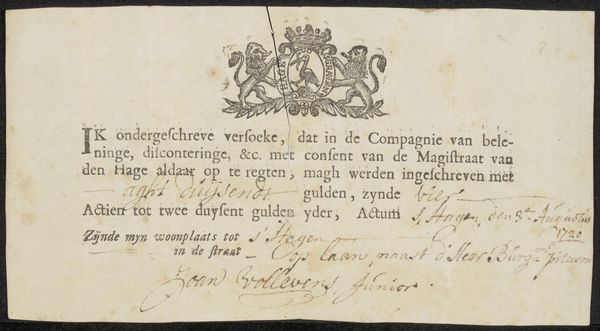 HAGE
IK ondergeschreve versoeke, dat in de Compagnie van bele-
ninge, disconteringe, &c. met consent van de Magistraat van
den Hage aldaar op te regten, magh werden ingeschreven met
— aght duijsendt — gulden, zynde vier
Actien tot twee duysent gulden yder, Actum s'Hagen, den 3de Augustus
1720
Zijnde myn woonplaats tot s'Hagen
in de straat — op laan, naast d'Heer Burgmr
Joan Vollevens Junior.